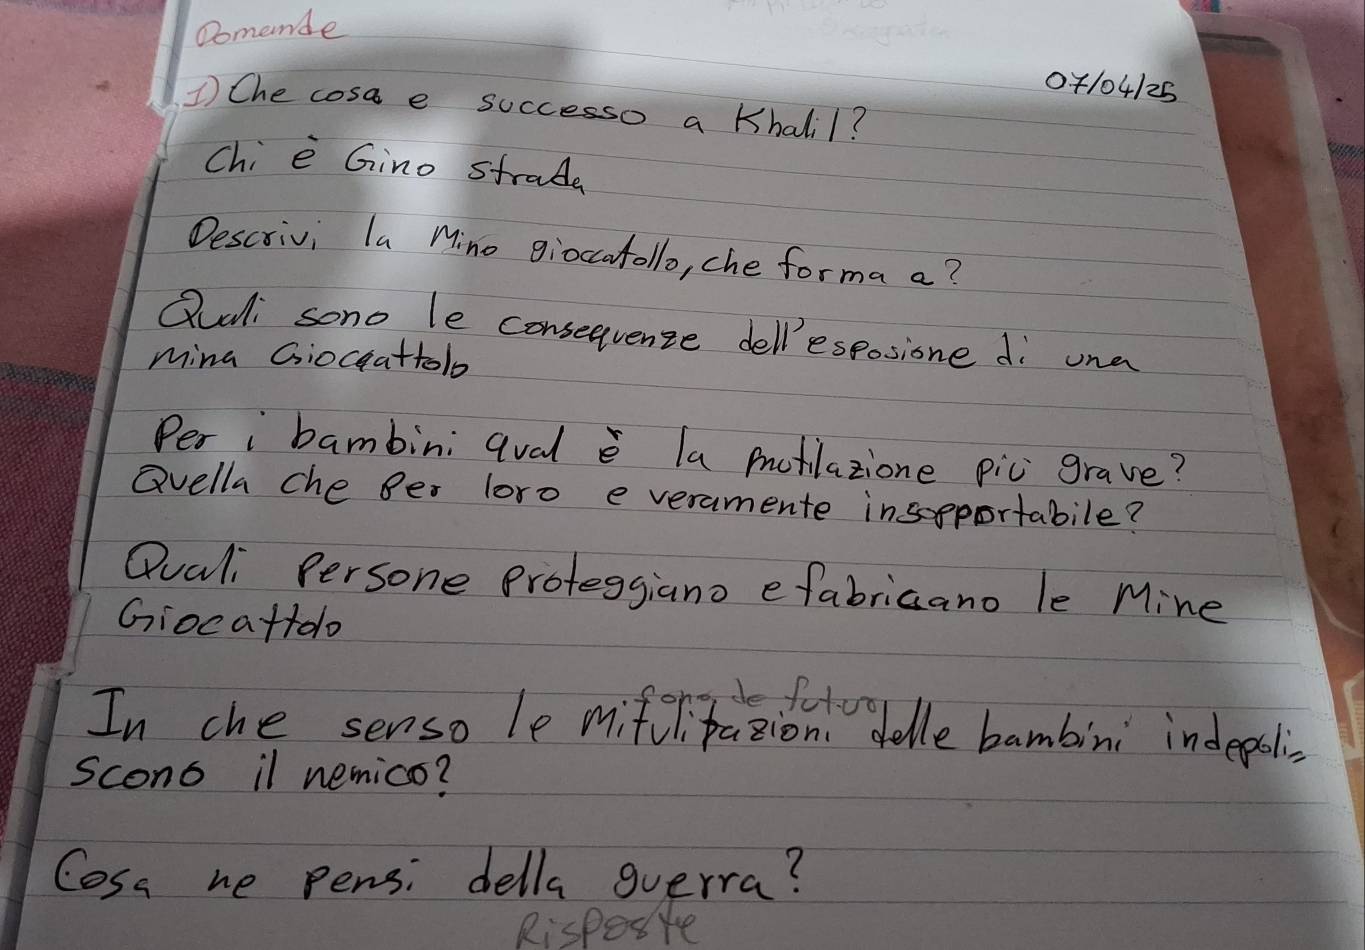 Domande
07/04/25
1) Che cosa e successo a Khalil?
Chi è Gino strada
Descrivi la Mino gioccatollo, che forma a?
Quali sono le conseqvenze dell'esposione di una
mina Gioccattolo
Per i bambini qval è la mutilazione più grave?
Qvella che per loro e veramente insopportabile?
Quali Persone proteggiano e fabricano le Mine
Giocattolo
In che senso le delle bambini indepolis
scono il nemico?
Cosa ne pensi della guerra?
Risposte